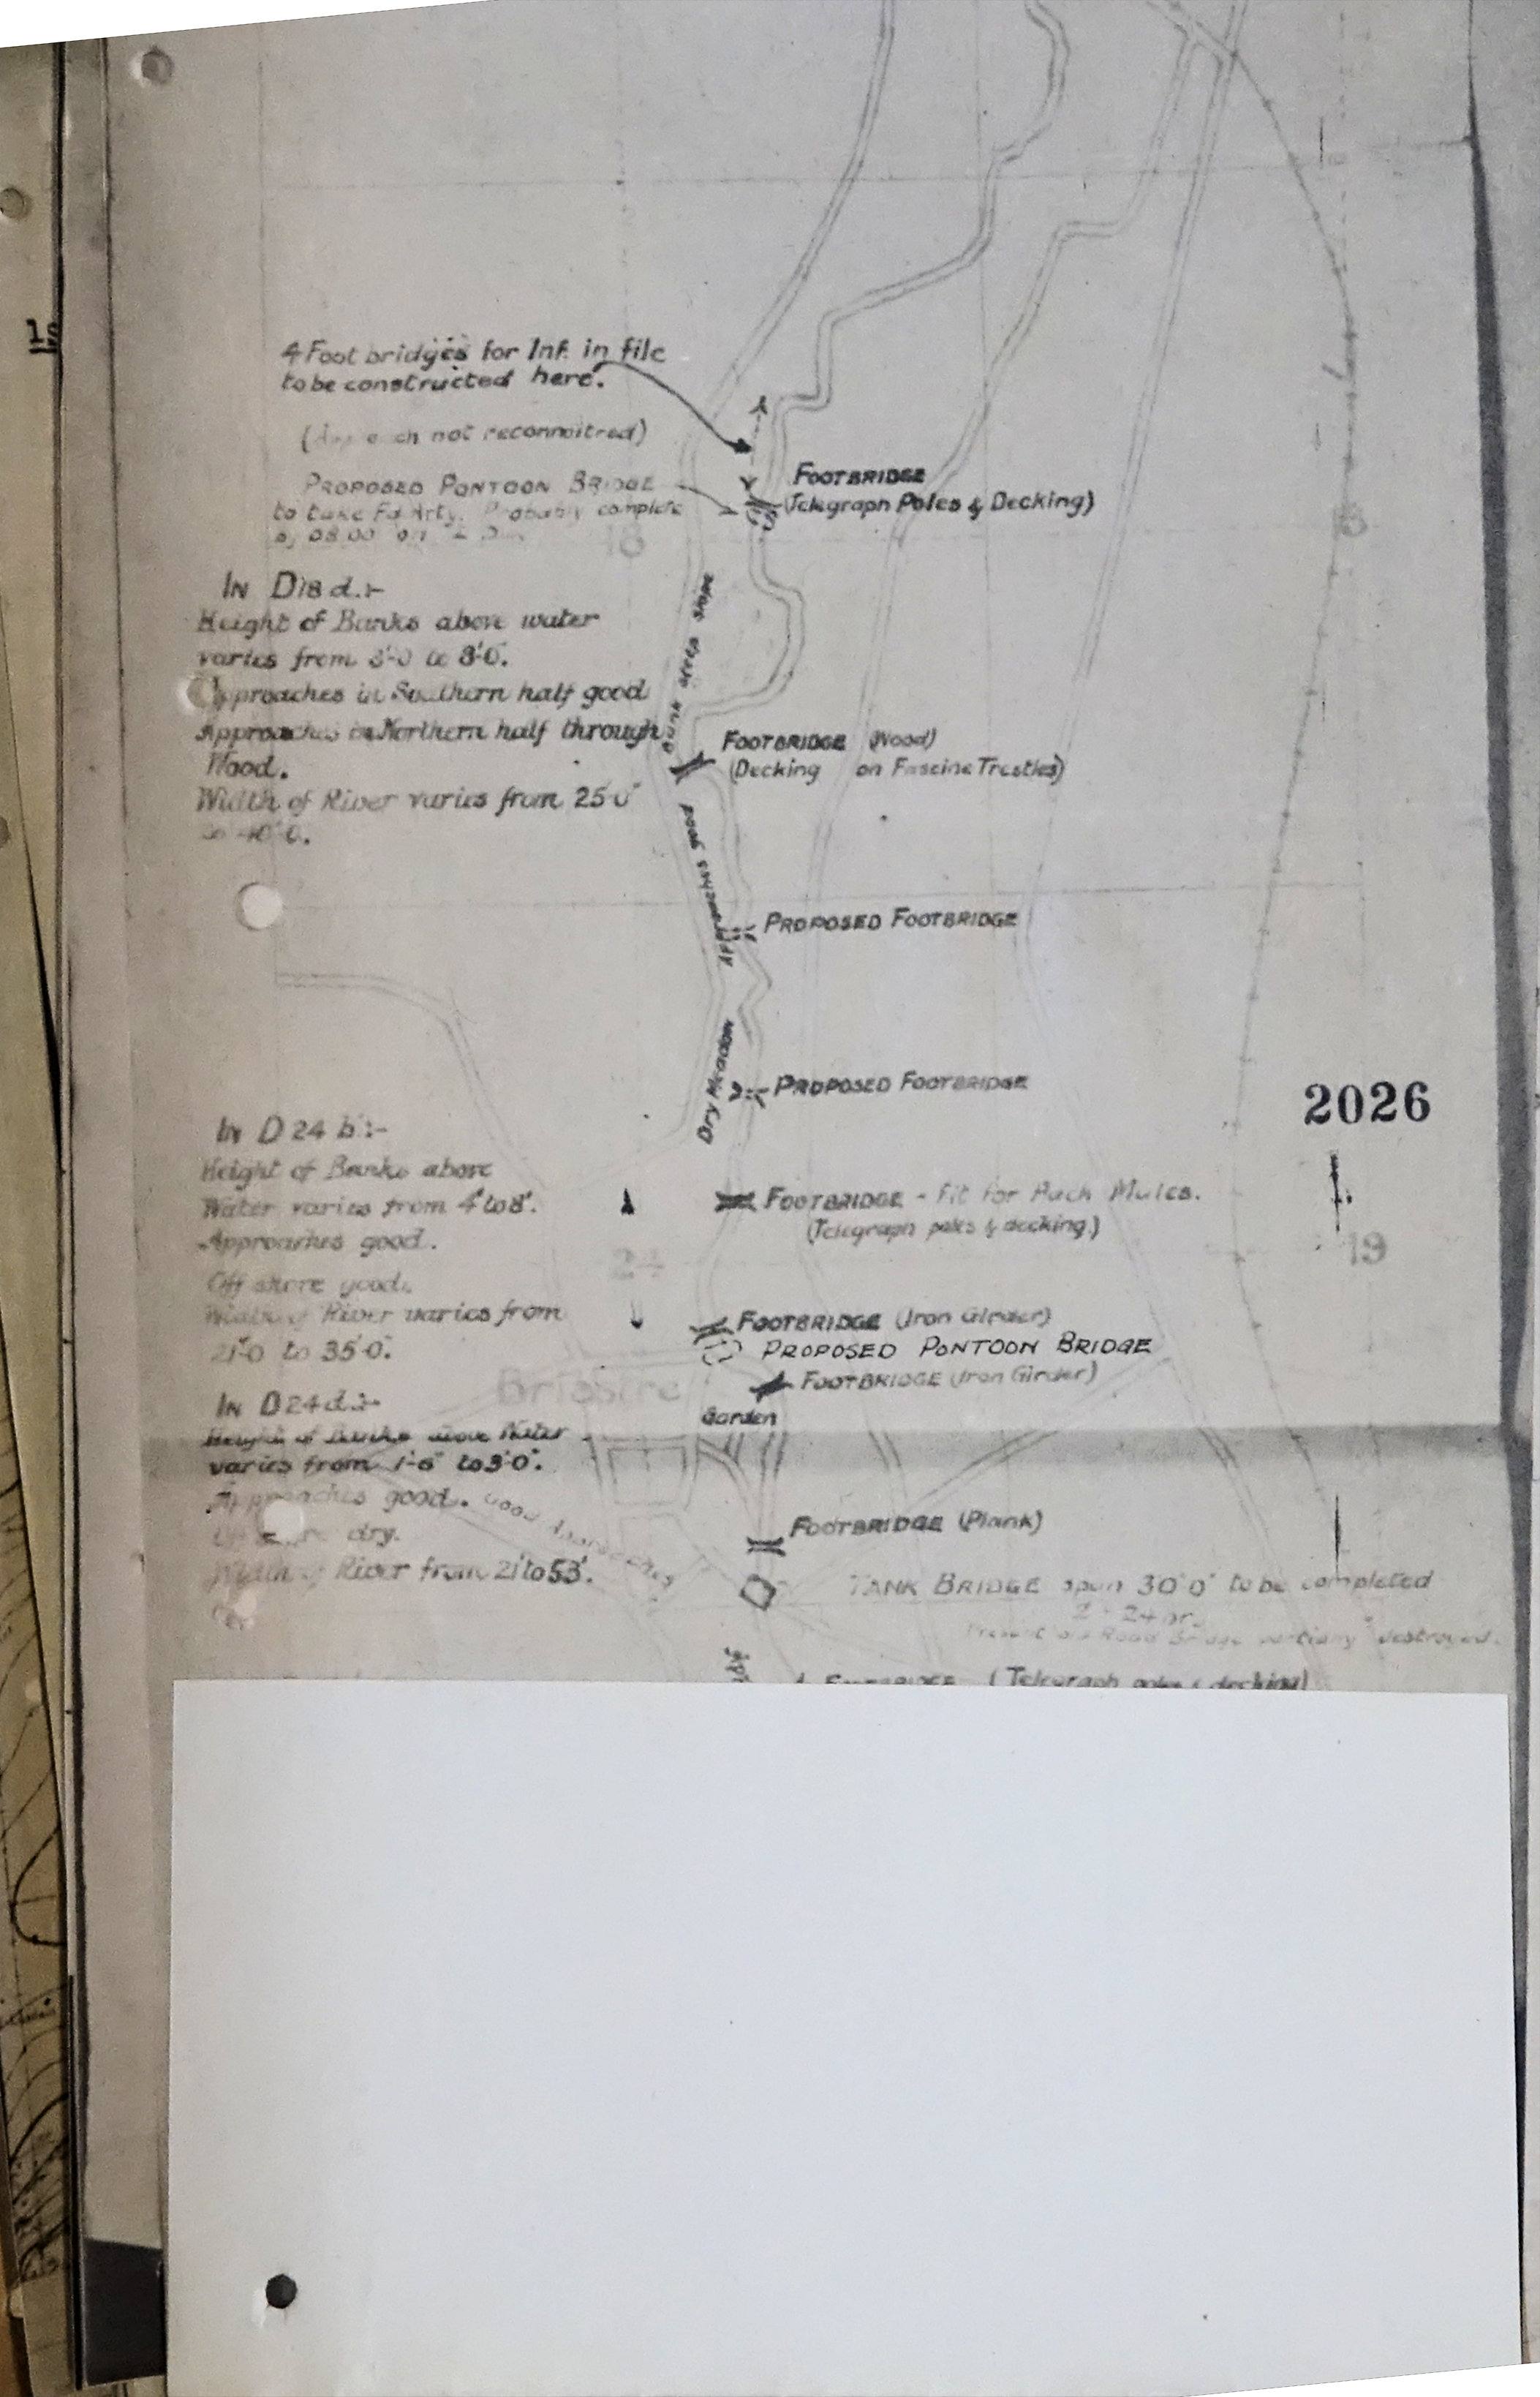 4 Foot bridges for Inf. in file
to be constructed here.
not reconnoitred)
PROPOSED PONTOON BRIDGE
to take Fd Arty. Probably complete
by 08.00 on
FOOTBRIDGE
(Telegraph Poles & Decking)
18
IN D18d.:-
Height of Banks above water
varies from 3'-0 to 8'-0".
Approaches in Southern half good
Approaches in Northern half through
Wood.
Width of River varies from 25'0"
to 40'0.
Bank steep slope
FOOTBRIDGE (Wood)
(Decking on Fascine Trestles)
Approaches good
PROPOSED FOOTBRIDGE
Dry Meadow
PROPOSED FOOTBRIDGE
2026
IN D24b:-
Height of Banks above
Water varies from 4' to 8'.
Approaches good.
Off shore good.
Width of River varies from
21'-0 to 35'0".
FOOTBRIDGE - Fit for Pack Mules.
(Telegraph poles & decking.)
24
19
FOOTBRIDGE (Iron Girder)
PROPOSED PONTOON BRIDGE
FOOTBRIDGE (Iron Girder)
Briastre
Garden
IN D24d:-
Height of Banks above Water
varies from 1'-6" to 3'-0".
Approaches good.
dry.
Width of River from 21' to 53'.
Good Approaches
FOOTBRIDGE (Plank)
TANK BRIDGE span 30'0" to be completed
Z + 24 hr.
Present old Road Bridge partially destroyed.
FOOTBRIDGE (Telegraph poles & decking)